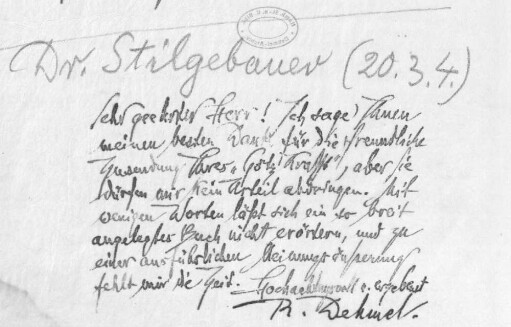 Dr. Stilgebauer (20.3.4.)
Sehr geehrter Herr! Ich sage Ihnen
meinen besten Dank für die freundliche
Zusendung Ihres „Götz Krafft", aber Sie
dürfen mir kein Urteil abdringen. Mit
wenigen Worten läßt sich ein so breit
angelegtes Buch nicht erörtern, und zu
einer ausführlichen Meinungsäußerung
fehlt mir die Zeit. Hochachtungsvoll u. ergebenst
R. Dehmel.